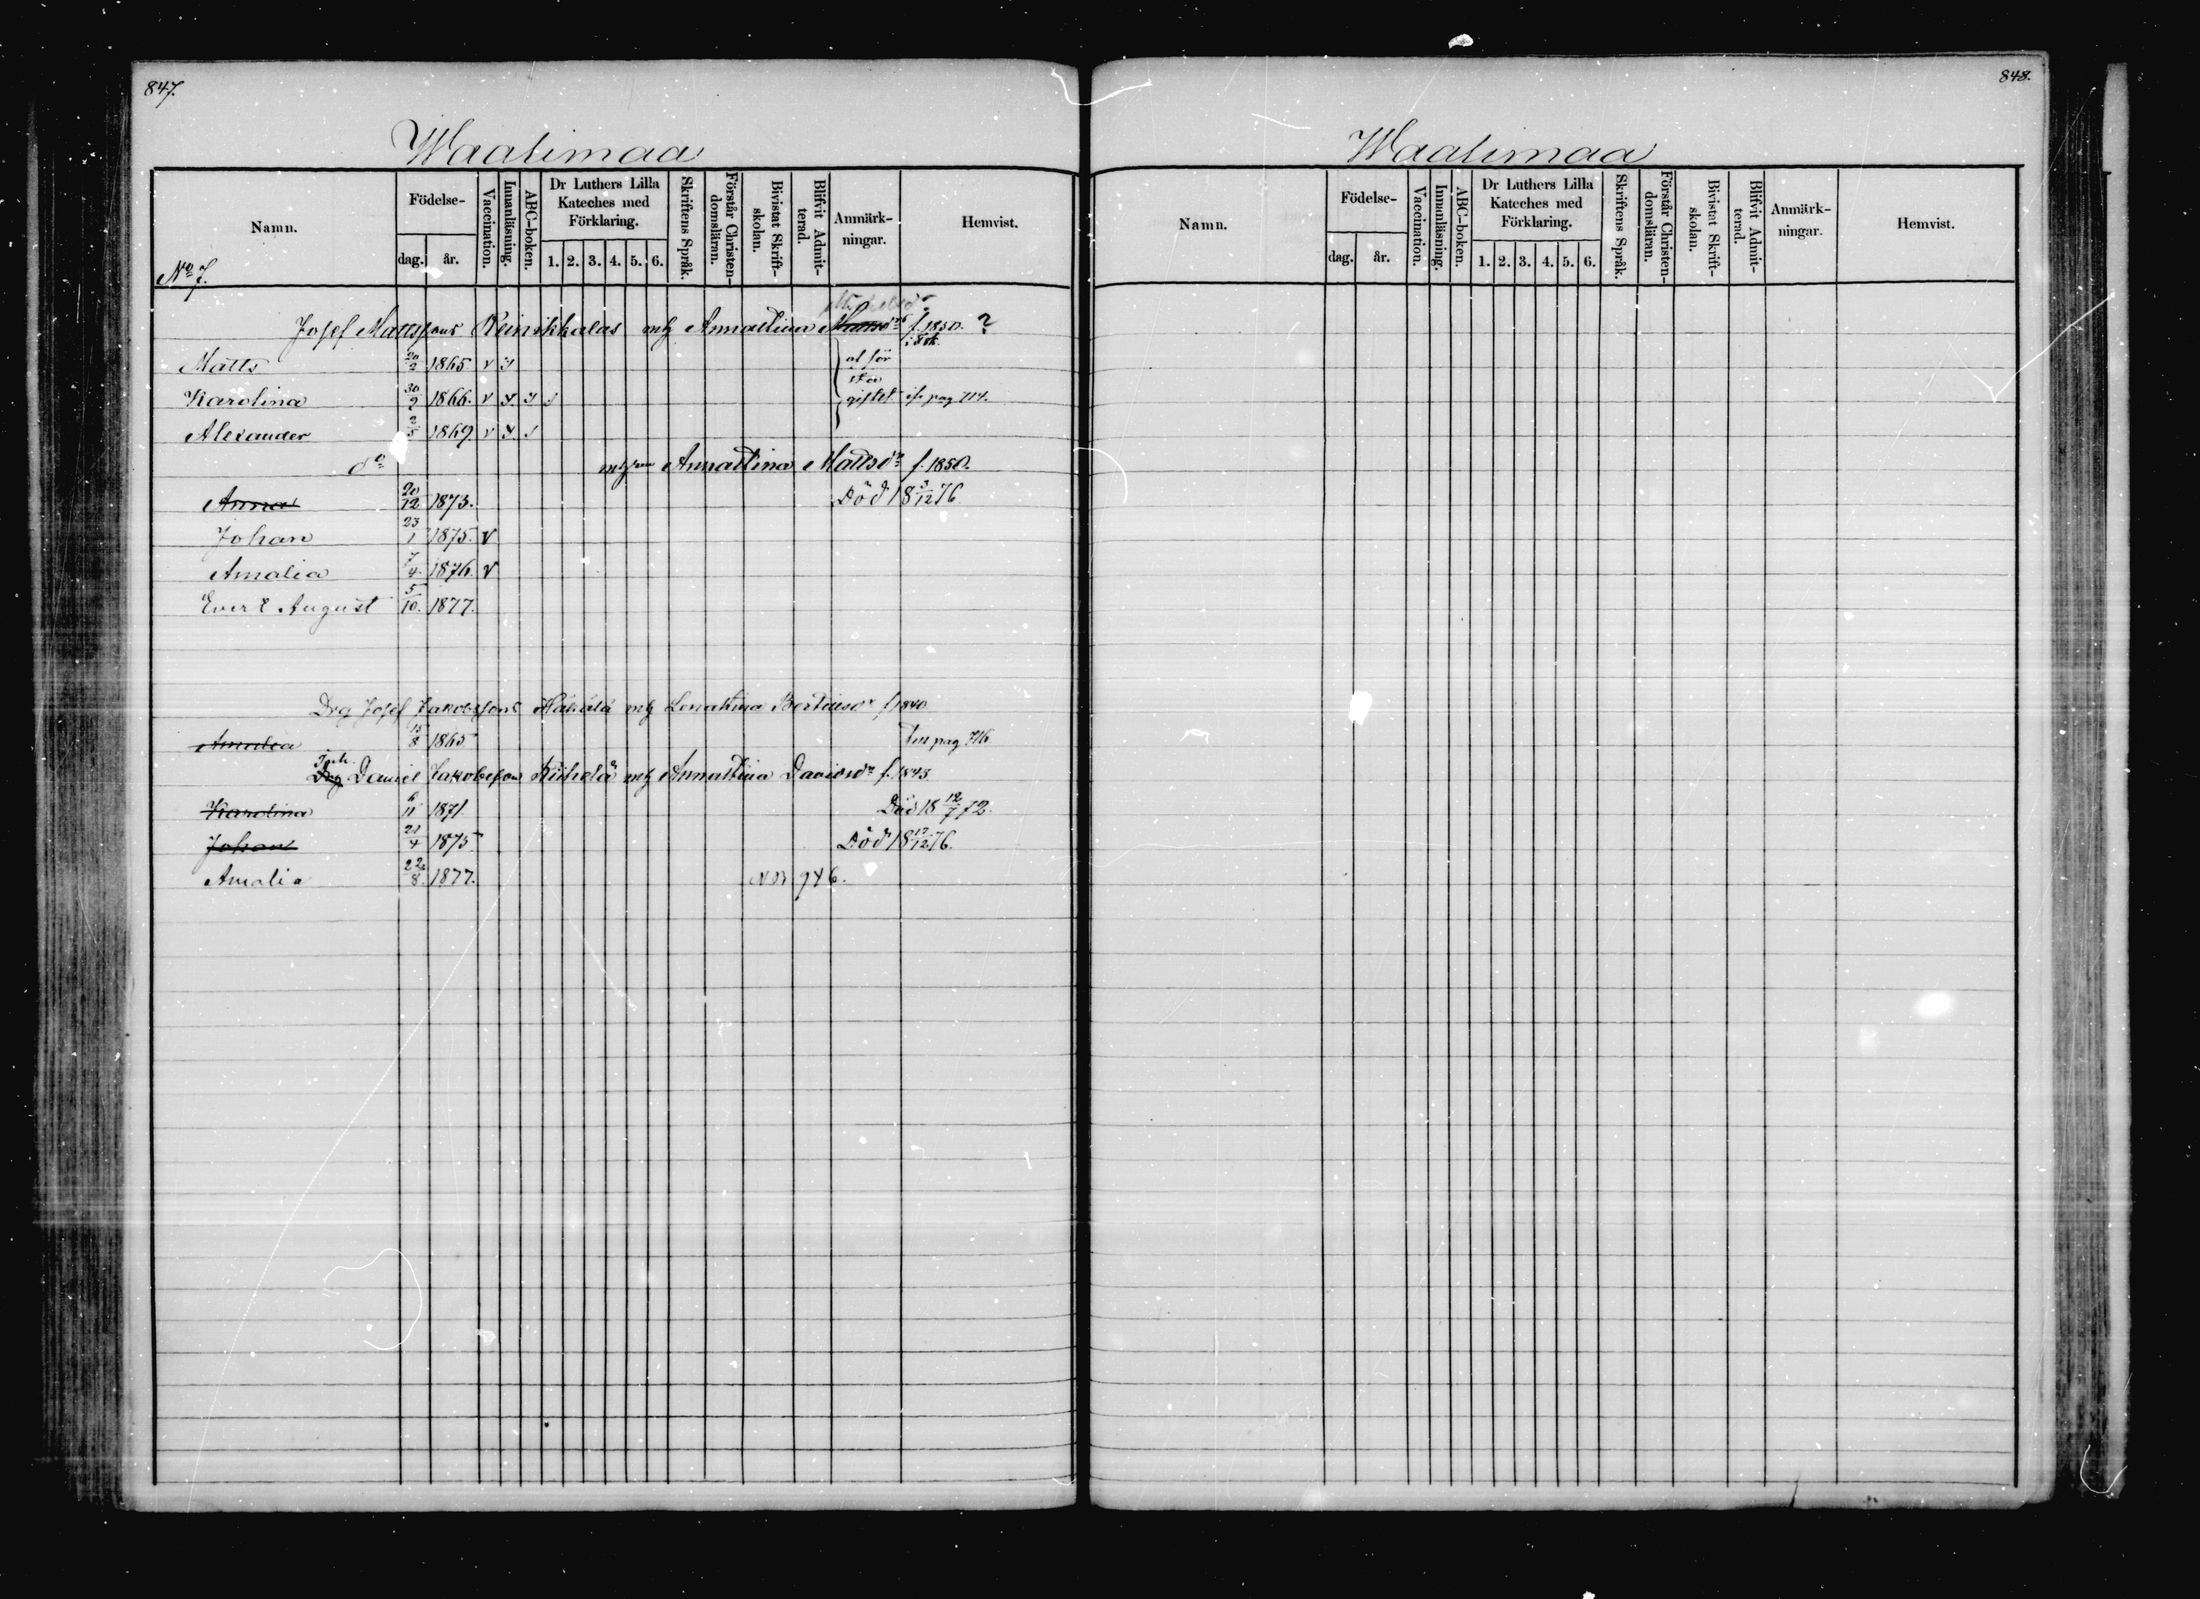 847.
Waalimaa
Namn. Födelse- dag. år. Vaccination. Innanläsning. ABC-boken. Dr Luthers Lilla Kateches med Förklaring. 1. 2. 3. 4. 5. 6. Skriftens Språk. Förstår Christen-domsläran. Bivistat Skrift-skolan. Blifvit Admit-terad. Anmärk-ningar. Hemvist.
No 7.
Josef Mattssons Reinikkalas mhu Annastina f. 1850. ?
Matts 20/2 1865 v
af för
sta
Karolina 30/9 1866. v giftet pag 714.
Alexander 2/5 1869. v
do Annastina Mattsdr f. 1850.
Anna 20/12 1873. Död 18 3/12 76
Johan 23/1 1875. v
Amalia 7/4 1876. v
Evert August 5/10. 1877.
Drg Josef Jakobssons mh Lenastina f 1840
Amalia 15/8 1865 pag 716
Daniel Jakobsson mh Annastina Davidsdr f. 1843
Karolina 6/11 1871. Död 18 12/7 72.
Johan 21/4 1875 Död 18 17/12 76.
Amalia 22/8. 1877. 946.
848.
Waalimaa
Namn. Födelse- dag. år. Vaccination. Innanläsning. ABC-boken. Dr Luthers Lilla Kateches med Förklaring. 1. 2. 3. 4. 5. 6. Skriftens Språk. Förstår Christen-domsläran. Bivistat Skrift-skolan. Blifvit Admit-terad. Anmärk-ningar. Hemvist.